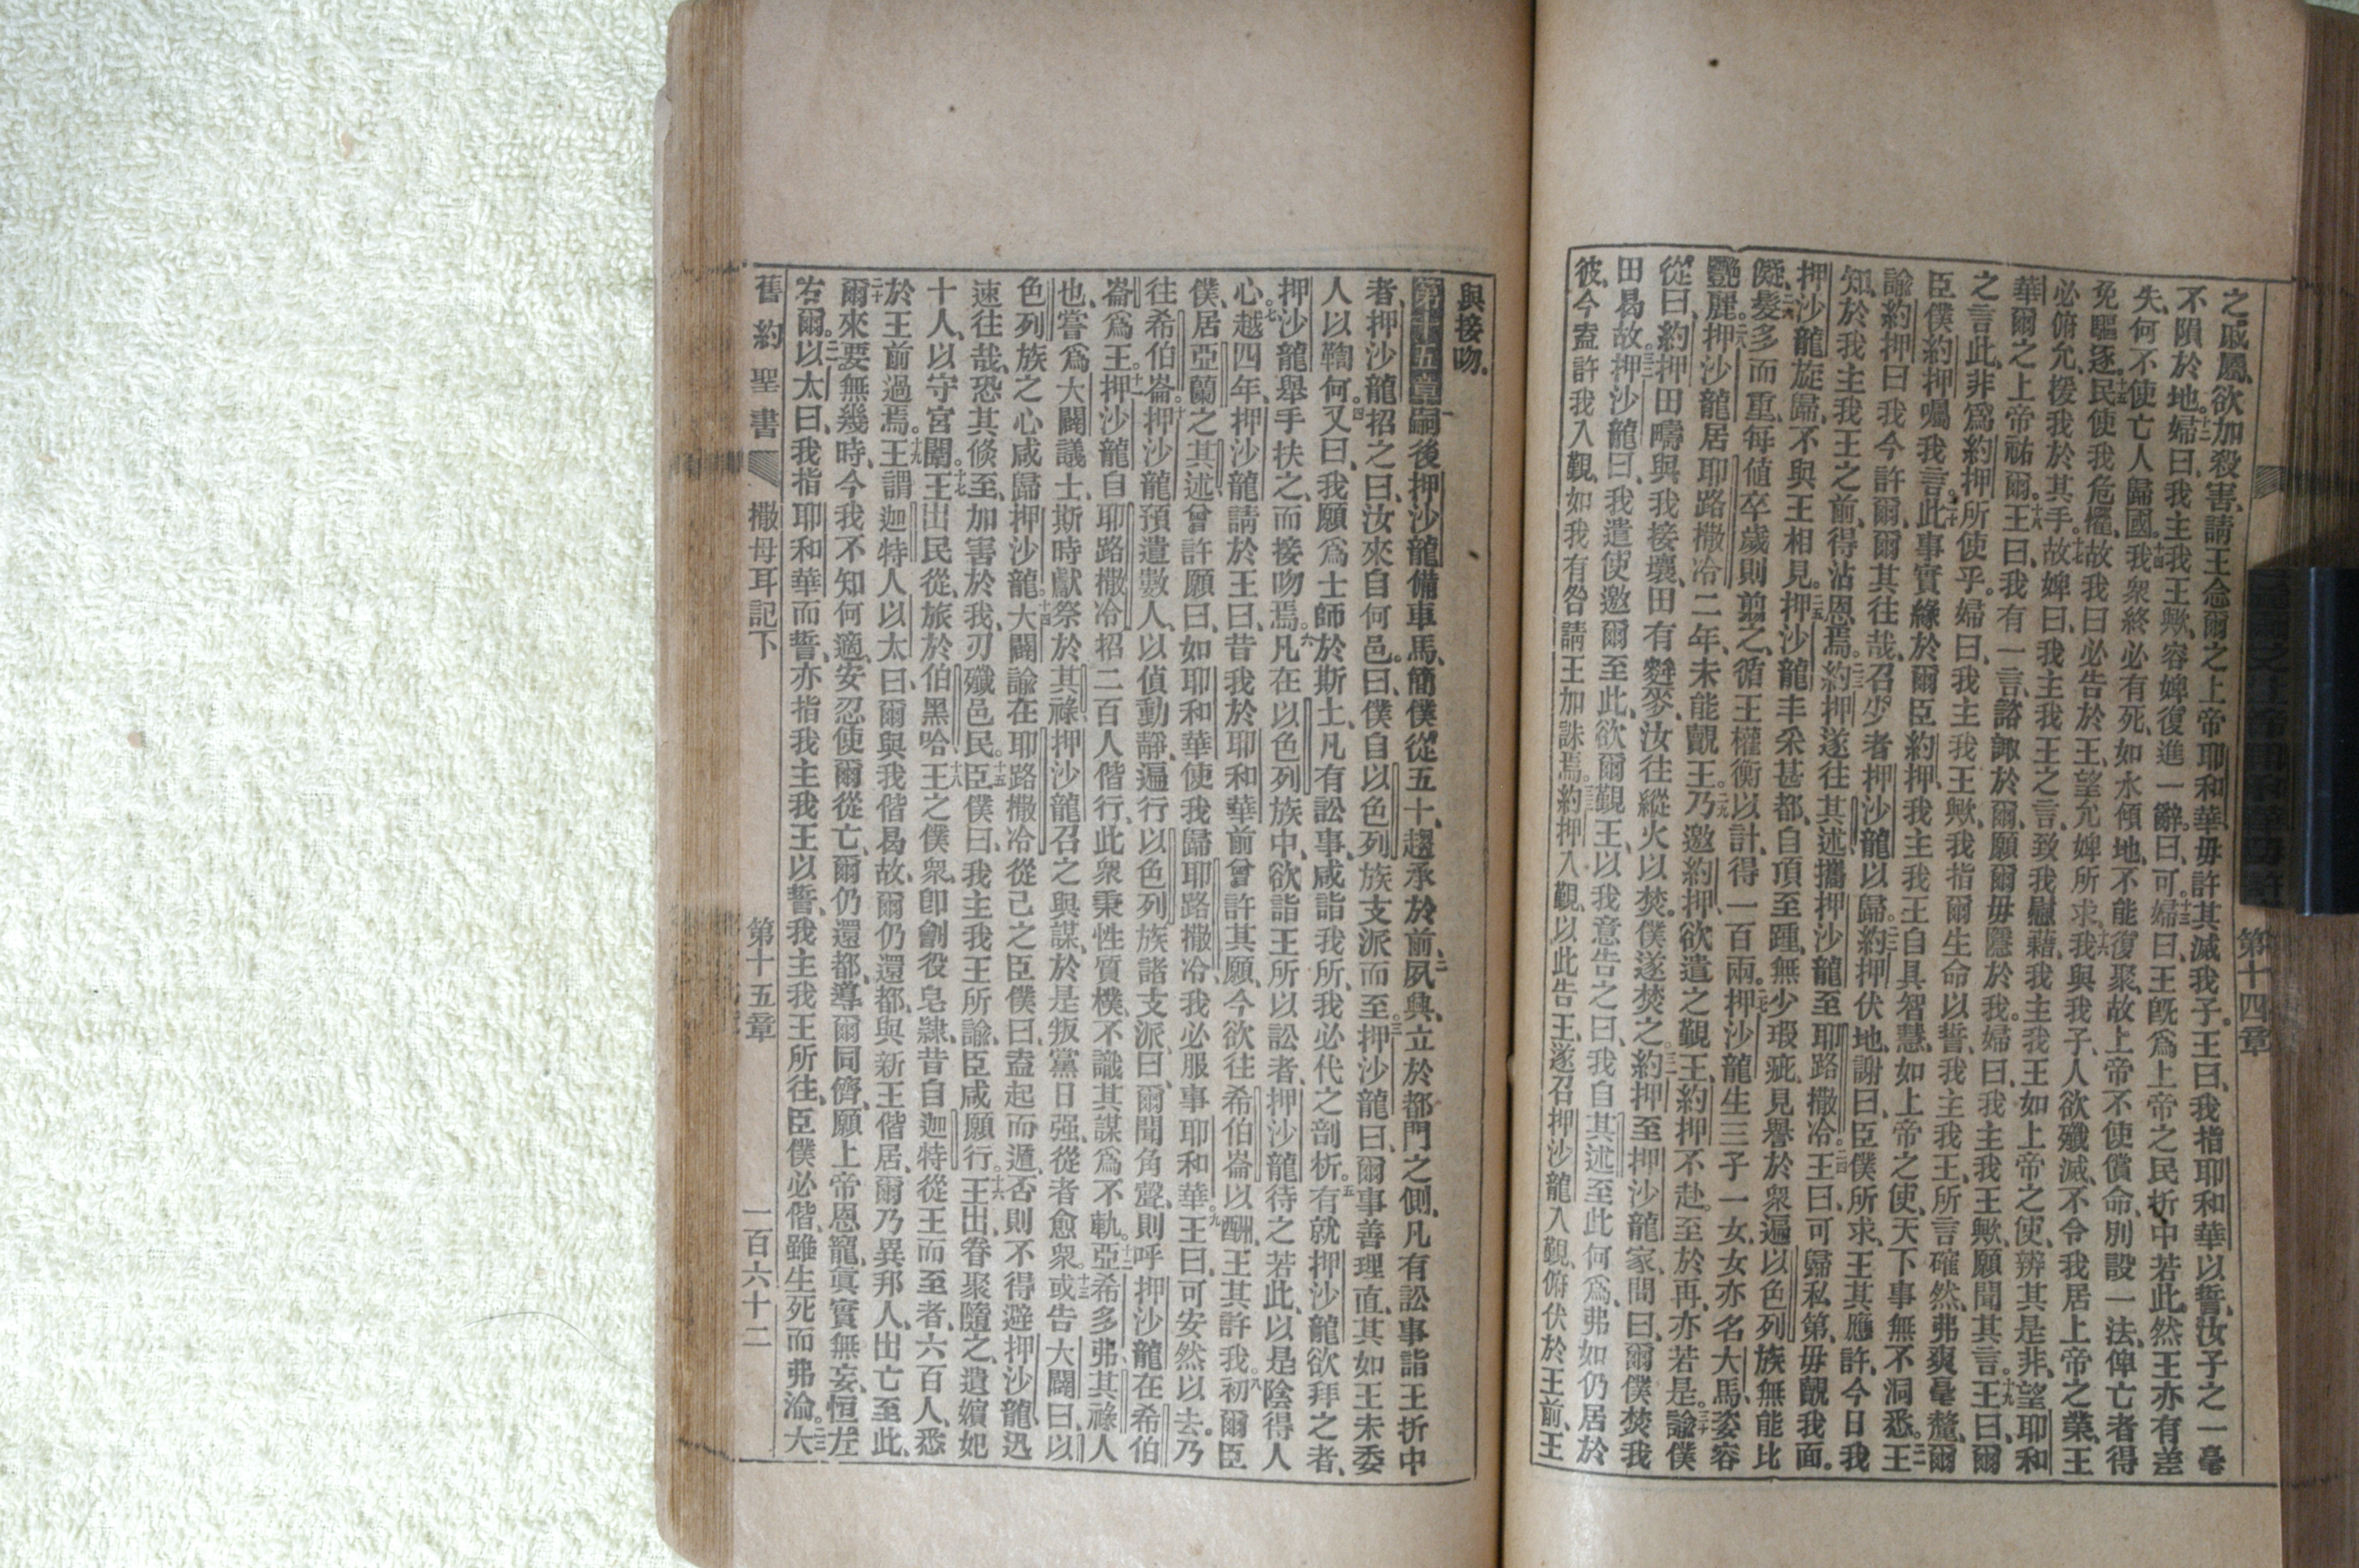 第十四章
之戚屬、欲加殺害、請王念爾之上帝耶和華、毋許其滅我子、王曰、我指耶和華以誓、汝子之一毫
不隕於地、十二婦曰、我主我王歟、容婢復進一辭、曰、可、十三婦曰、王旣爲上帝之民折中若此、然王亦有差
失、何不使亡人歸國、十四我衆終必有死、如水傾地、不能復聚、故上帝不使償命、別設一法、俾亡者得
免驅逐、十五民使我危懼、故我曰、必告於王、望允婢所求、十六我與我子、人欲殲滅、不令我居上帝之業、王
必俯允、援我於其手、十七故婢曰、我主我王之言、致我慰藉、我主我王如上帝之使、辨其是非、望耶和
華爾之上帝祐爾、十八王曰、我有一言、諮諏於爾、願爾毋隱於我、婦曰、我主我王歟、願聞其言、十九王曰、爾
之言此、非爲約押所使乎、婦曰、我主我王歟、我指爾生命以誓、我主我王、所言確然、弗爽毫釐、爾
臣僕約押囑我言、二十此事實緣於爾臣約押、我主我王自具智慧、如上帝之使、天下事無不洞悉、二一王
諭約押曰、我今許爾、爾其往哉、召少者押沙龍以歸、二二約押伏地、謝曰、臣僕所求、王其應許、今日我
知、於我主我王之前、得沾恩焉、二三約押遂往其述、攜押沙龍至耶路撒冷、二四王曰、可歸私第、毋覿我面、
押沙龍旋歸、不與王相見、二五押沙龍丰采甚都、自頂至踵、無少瑕疵、見譽於衆、遍以色列族無能比
儗、二六髮多而重、每値卒歲則翦之、循王權衡以計、得一百兩、二七押沙龍生三子一女、女亦名大馬、姿容
艷麗、二八押沙龍居耶路撒冷二年、未能覿王、二九乃邀約押、欲遣之覲王、約押不赴、至於再、亦若是、三十諭僕
從曰、約押田疇與我接壤、田有麰麥、汝往縱火以焚、僕遂焚之、三一約押至押沙龍家、問曰、爾僕焚我
田曷故、三二押沙龍曰、我遣使邀爾至此、欲爾覲王、以我意告之曰、我自其述至此何爲、弗如仍居於
彼、今盍許我入覲、如我有咎、請王加誅焉、三三約押入覲、以此告王、遂召押沙龍入覲、俯伏於王前、王
與接吻、
第十五章 嗣後押沙龍備車馬、簡僕從五十、趨承於前、二夙興、立於都門之側、凡有訟事詣王折中
者、押沙龍招之曰、汝來自何邑、曰、僕自以色列族支派而至、三押沙龍曰、爾事善理直、其如王未委
人以鞫何、四又曰、我願爲士師於斯土、凡有訟事、咸詣我所、我必代之剖析、五有就押沙龍欲拜之者、
押沙龍舉手扶之、而接吻焉、六凡在以色列族中、欲詣王所以訟者、押沙龍待之若此、以是陰得人
心、七越四年、押沙龍請於王曰、昔我於耶和華前曾許其願、今欲往希伯崙以酬、王其許我、八初爾臣
僕、居亞蘭之其述、曾許願曰、如耶和華使我歸耶路撒冷、我必服事耶和華、九王曰、可安然以去、乃
往希伯崙、十押沙龍預遣數人、以偵動靜、遍行以色列族諸支派、曰、爾聞角聲、則呼押沙龍在希伯
崙爲王、十一押沙龍自耶路撒冷招二百人偕行、此衆秉性質樸、不識其謀爲不軌、十二亞希多弗、其祿人
也、嘗爲大闢議士、斯時獻祭於其祿、押沙龍召之與謀、於是叛黨日强、從者愈衆、十三或告大闢曰、以
色列族之心、咸歸押沙龍、十四大闢諭在耶路撒冷從己之臣僕曰、盍起而遁、否則不得避押沙龍、迅
速往哉、恐其倐至、加害於我、刃殲邑民、十五臣僕曰、我主我王所諭、臣咸願行、十六王出、眷聚隨之、遺嬪妃
十人、以守宮闈、十七王出民從、旅於伯黑哈、十八王之僕衆、卽劊役皂隸、昔自迦特從王而至者、六百人、悉
於王前過焉、十九王謂迦特人以太曰、爾與我偕曷故、爾仍還都、與新王偕居、爾乃異邦人、出亡至此、
二十爾來要無幾時、今我不知何適、安忍使爾從亡、爾仍還都、導爾同儕、願上帝恩寵、眞實無妄、恒左
右爾、二一以太曰、我指耶和華而誓、亦指我主我王以誓、我主我王所往、臣僕必偕、雖生死而弗渝、二二大
舊約聖書 撒母耳記下 第十五章 一百六十二